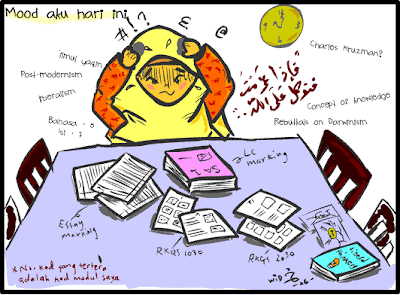 Mood aku hari ini
#!?
@
'ilmul yaqin
Post-modernism
liberalism
Bahasa
Charles Khuzman?
Concept of knowledge
Rebuttals on Darwinism
فإذا عزمت
فتوكل على الله
LC marking
Essay marking
RKGS 1030
RKGS 2030
* No. kod yang tertera
adalah kod modul saya